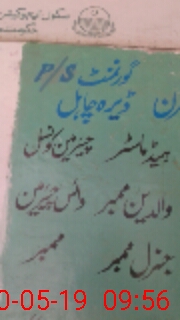 گورنمنٹ P/S
ڈیرہ چاہل
ہیڈ ماسٹر چیئرمین کونسل
والدین ممبر وائس چیئرمین
جنرل ممبر ممبر
0-05-19 09:56